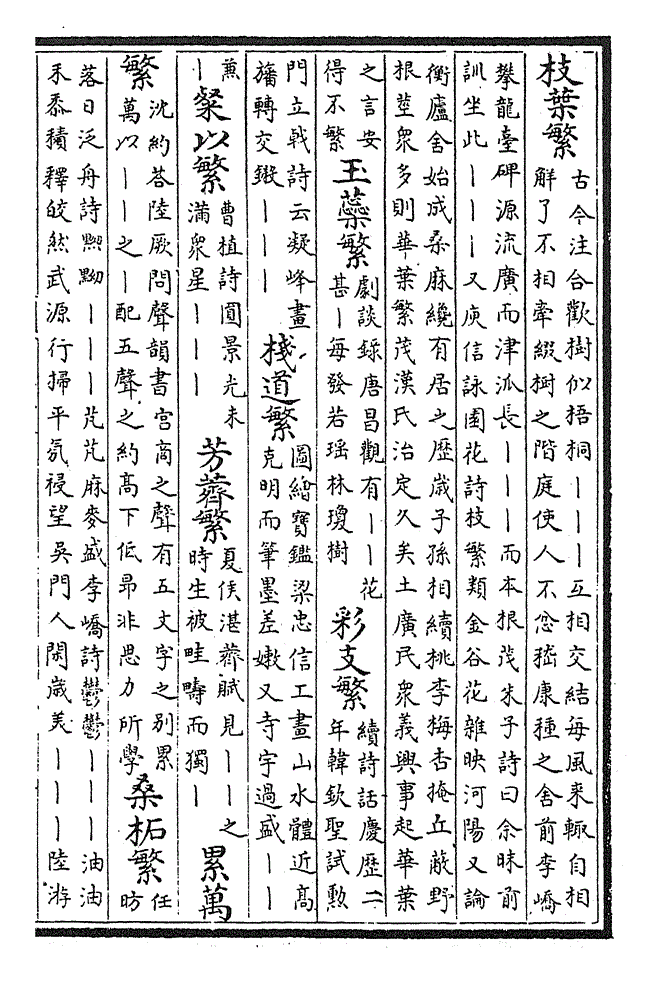 枝葉繁
古今注合歡樹似梧桐｜｜｜互相交結每風來輒自相
解了不相牽綴樹之階庭使人不忿嵇康種之舍前李嶠
攀龍臺碑源流廣而津派長｜｜｜而本根茂朱子詩曰余昧前
訓坐此｜｜｜又庾信詠園花詩枝繁類金谷花雜映河陽又論
衡廬舍始成桑麻纔有居之歷歲子孫相續桃李梅杏掩丘蔽野
根莖衆多則華葉繁茂漢氏治定久矣土廣民衆義興事起華葉
之言安
得不繁
玉蘂繁
劇談錄唐昌觀有｜｜花
甚｜每發若瑤林瓊樹
彩支繁
續詩話慶歷二
年韓欽聖試勲
門立戟詩云凝峰畫
旛轉交鎩｜｜｜
棧道繁
圖繪寶鑑梁忠信工畫山水體近高
克明而筆墨差嫩又寺宇過盛｜｜
兼
｜
粲以繁
曹植詩圓景光未
滿衆星｜｜｜
芳薺繁
夏侯湛薺賦見｜｜之
時生被畦疇而獨｜
累萬
繁
沈約答陸厥問聲韻書宮商之聲有五文字之別累
萬以｜｜之｜配五聲之約高下低昂非思力所學
桑柘繁
任
昉
落日泛舟詩黕黝｜｜｜芃芃麻麥盛李嶠詩鬱鬱｜｜｜油油
禾黍積釋皎然武源行掃平氛祲望吳門人閑歲美｜｜｜陸游